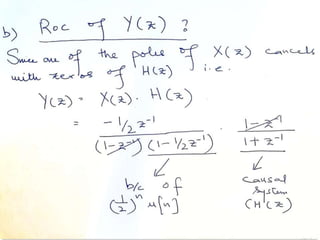 b) ROC of Y(z) ?
Since one of the poles of X(z) cancels
with zeros of H(z) i.e.
Y(z) = X(z) . H(z)
= -1/2 z⁻¹ / (1-z⁻¹) (1-1/2z⁻¹) . 1-z⁻¹ / 1+z⁻¹
b/c of causal
(1/2)ⁿ u[n] system
(H(z)